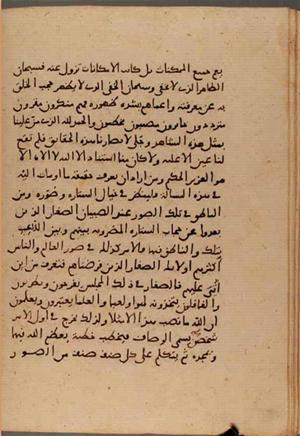 مع جميع الممكنات بل كانت الامكانات تزول عنه فسبحان
الظاهر الذى لا يخفى وسبحان الخفى الذى لا يظهر حجب الخلق
به عن معرفته واعماهم بشدة ظهوره فهم منكرون مقرون
مترددون حايرون مصيبون مخطئون والحمد لله الذى من علينا
بمثل هذه المشاهد وجلى لابصارنا هذه الحقايق فلم تقع
لنا عين الا عليه ولا كان منا استناد الا اليه لا اله الا
هو العزيز الحكيم ومن اراد ان يعرف حقيقة ما اومات اليه
فى هذه المسالة فلينظر فى خيال الستاره وصوره ومن
الناطق فى تلك الصور عند الصبيان الصغار الذين
بعدوا عن حجاب الستاره المضروبه بينهم وبين اللاعب
بتلك والناطق فيها فالامر كذلك فى صور العالم والناس
اكثرهم اوليك الصغار الذين فرضناهم فتعرف من اين
اتى عليهم فالصغار فى ذلك المجلس يفرحون ويطربون
والغافلون يتخذونه لهوا ولعبا والعلما يعتبرون ويعلمون
ان الله ما نصب هذا الا مثلا ولذلك يخرج فى اول الامر
شخص يسمى الوصاف فيخطب خطبة يعظم الله فيها
ويمجده ثم يتكلم على كل صنف صنف من الصور